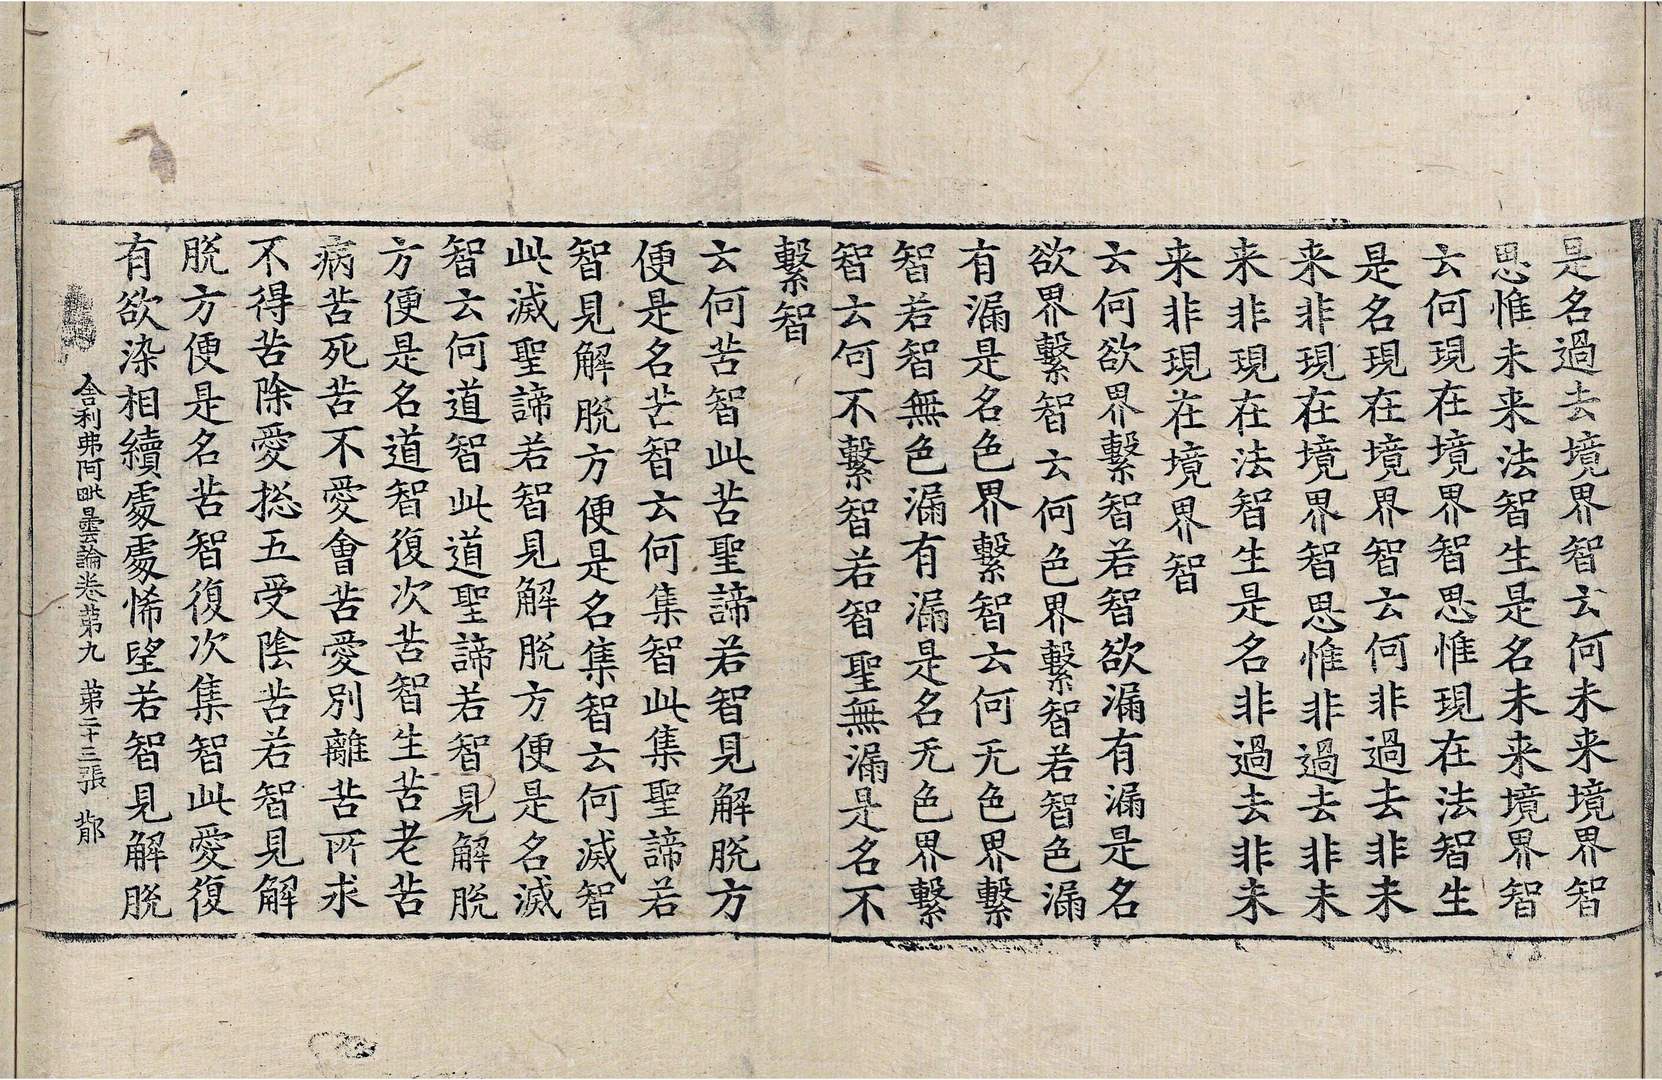 是名過去境界智云何未来境界智
思惟未来法智生是名未来境界智
云何現在境界智思惟現在法智生
是名現在境界智云何非過去非未
来非現在境界智思惟非過去非未
来非現在法智生是名非過去非未
来非現在境界智
云何欲界繫智若智欲漏有漏是名
欲界繫智云何色界繫智若智色漏
有漏是名色界繫智云何无色界繫
智若智無色漏有漏是名无色界繫
智云何不繫智若智聖無漏是名不
繫智
云何苦智此苦聖諦若智見解脫方
便是名苦智云何集智此集聖諦若
智見解脫方便是名集智云何滅智
此滅聖諦若智見解脫方便是名滅
智云何道智此道聖諦若智見解脫
方便是名道智復次苦智生苦老苦
病苦死苦不愛會苦愛別離苦所求
不得苦除愛捴五受陰苦若智見解
脫方便是名苦智復次集智此愛復
有欲染相續處處悕望若智見解脫
舍利弗阿毗曇論卷苐九 苐二十三張